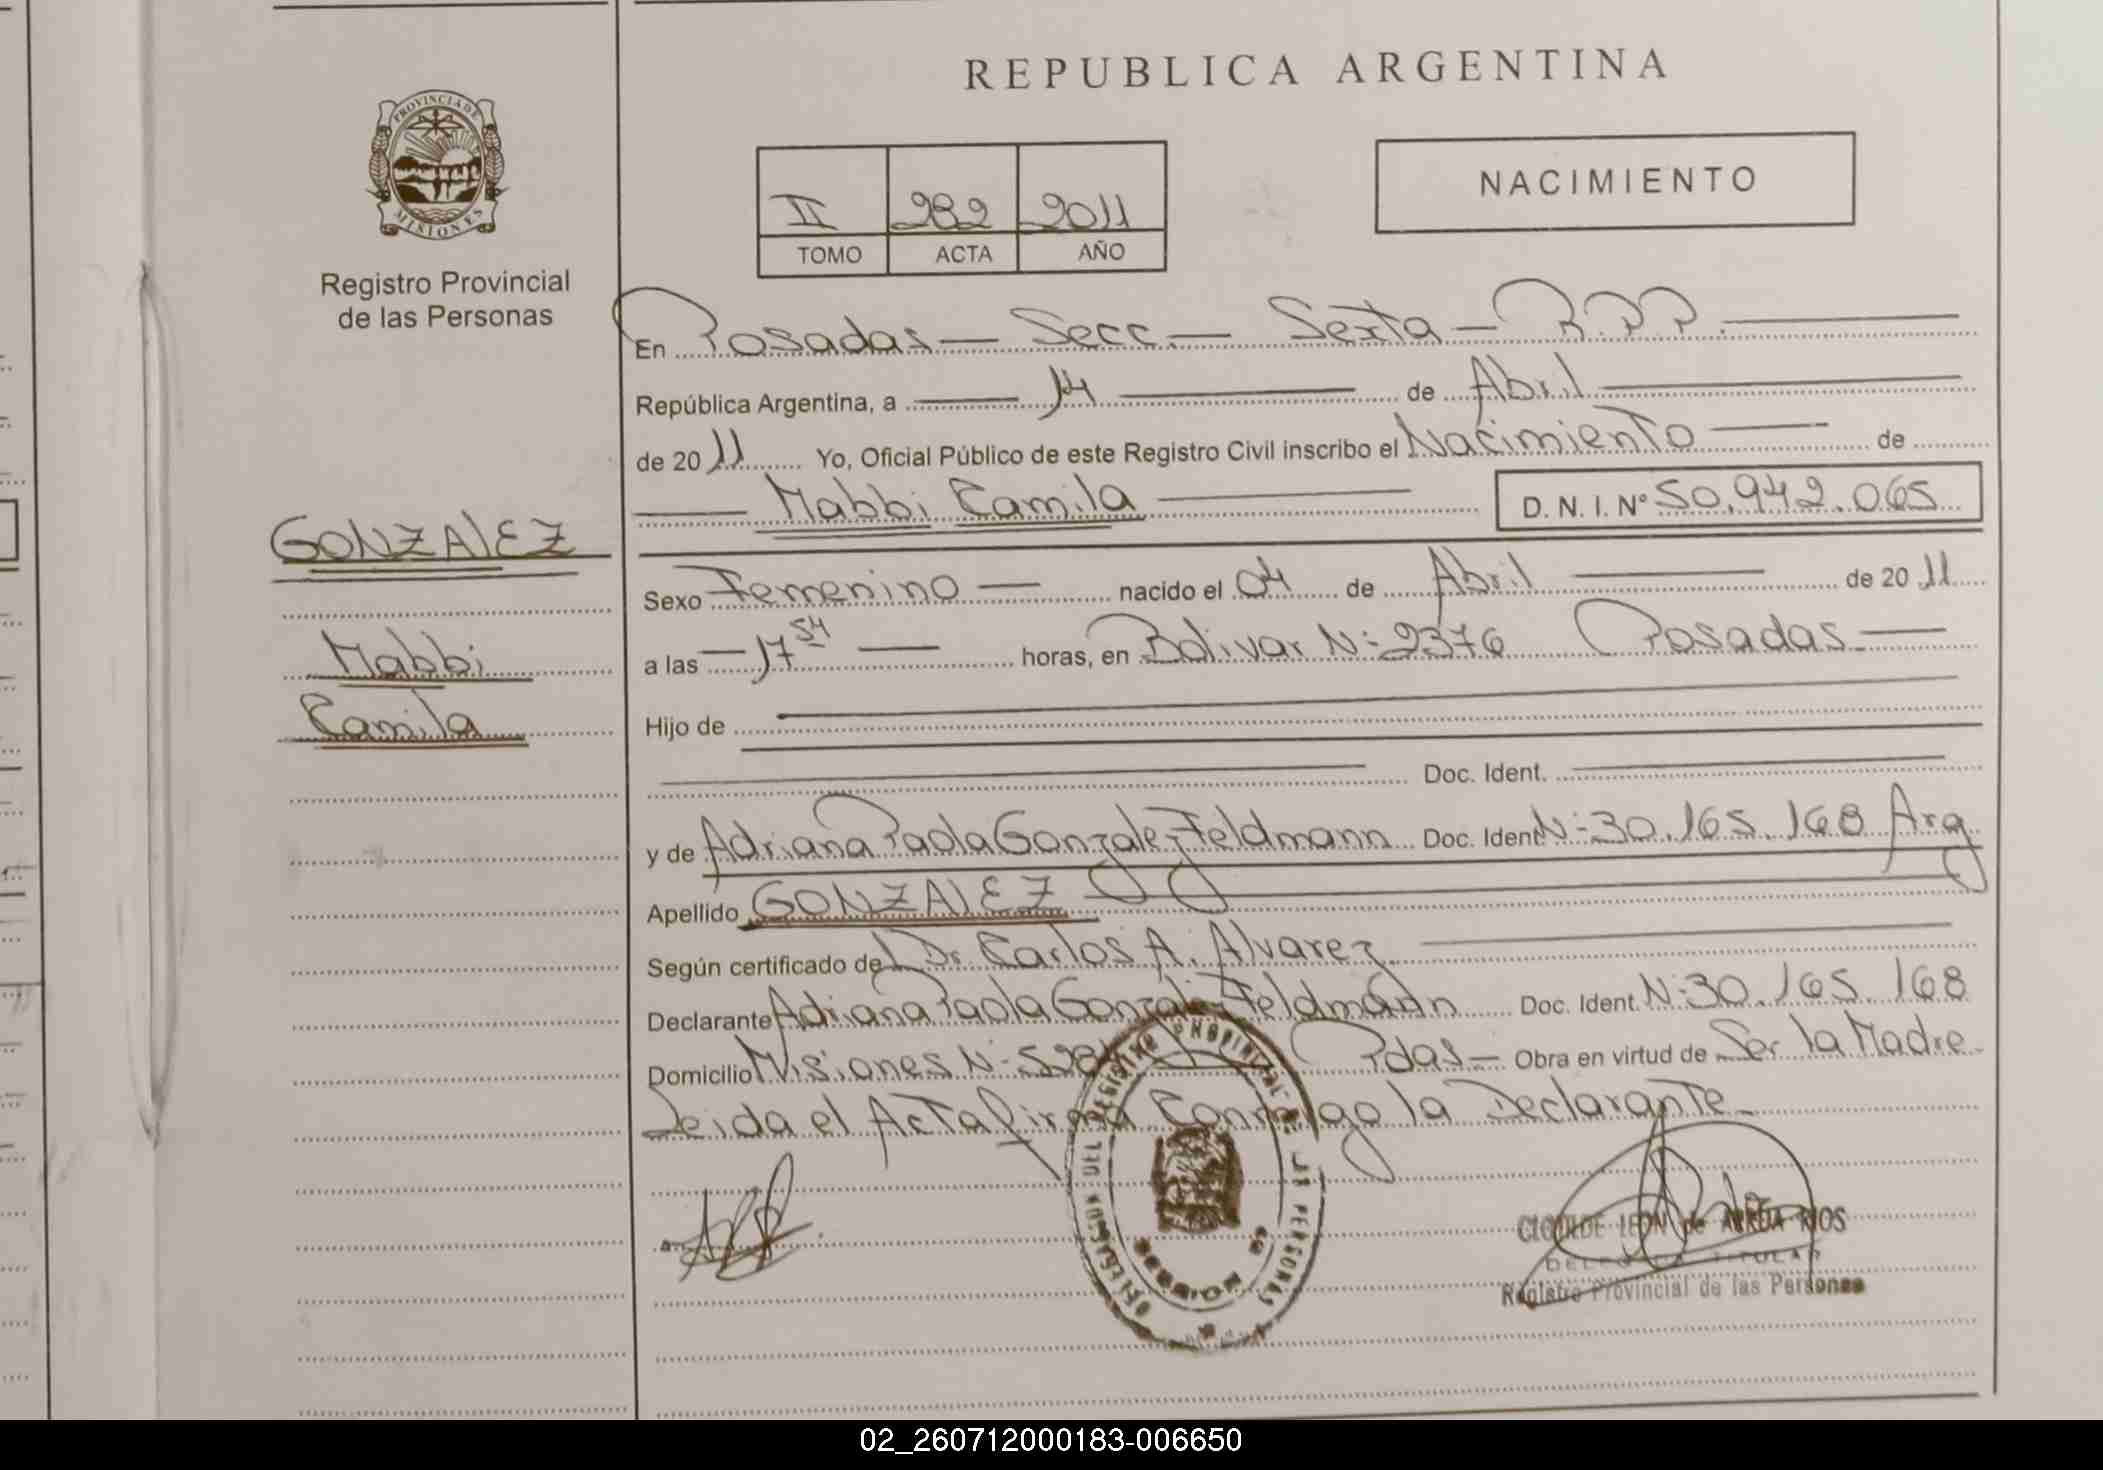 PROVINCIA DE
MISIONES
Registro Provincial
de las Personas
GONZALEZ
Mabbi
Camila
REPUBLICA ARGENTINA
II 282 2011
TOMO ACTA AÑO
NACIMIENTO
En Posadas - Secc. - Sexta - R.P.P.
República Argentina, a 14 de Abril
de 2011 Yo, Oficial Público de este Registro Civil inscribo el Nacimiento de
Mabbi Camila D. N. I. Nº 50.942.065
Sexo Femenino nacido el 04 de Abril de 2011
a las 17 54 horas, en Bolivar Nº 2376 Posadas
Hijo de
Doc. Ident.
y de Adriana Paola Gonzalez Feldmann Doc. Ident Nº 30.165.168 Arg
Apellido GONZALEZ
Según certificado de Dr. Carlos A. Alvarez
Declarante Adriana Paola Gonzalez Feldmann Doc. Ident. Nº 30.165.168
Domicilio Misiones Nº Pdas - Obra en virtud de Ser la Madre
Leida el Acta firma Conmigo la Declarante
REGISTRO PROVINCIAL DE LAS PERSONAS
CLOTILDE LEON de ARRUA RIOS
DELEGADA TITULAR
Registro Provincial de las Personas
02_260712000183-006650